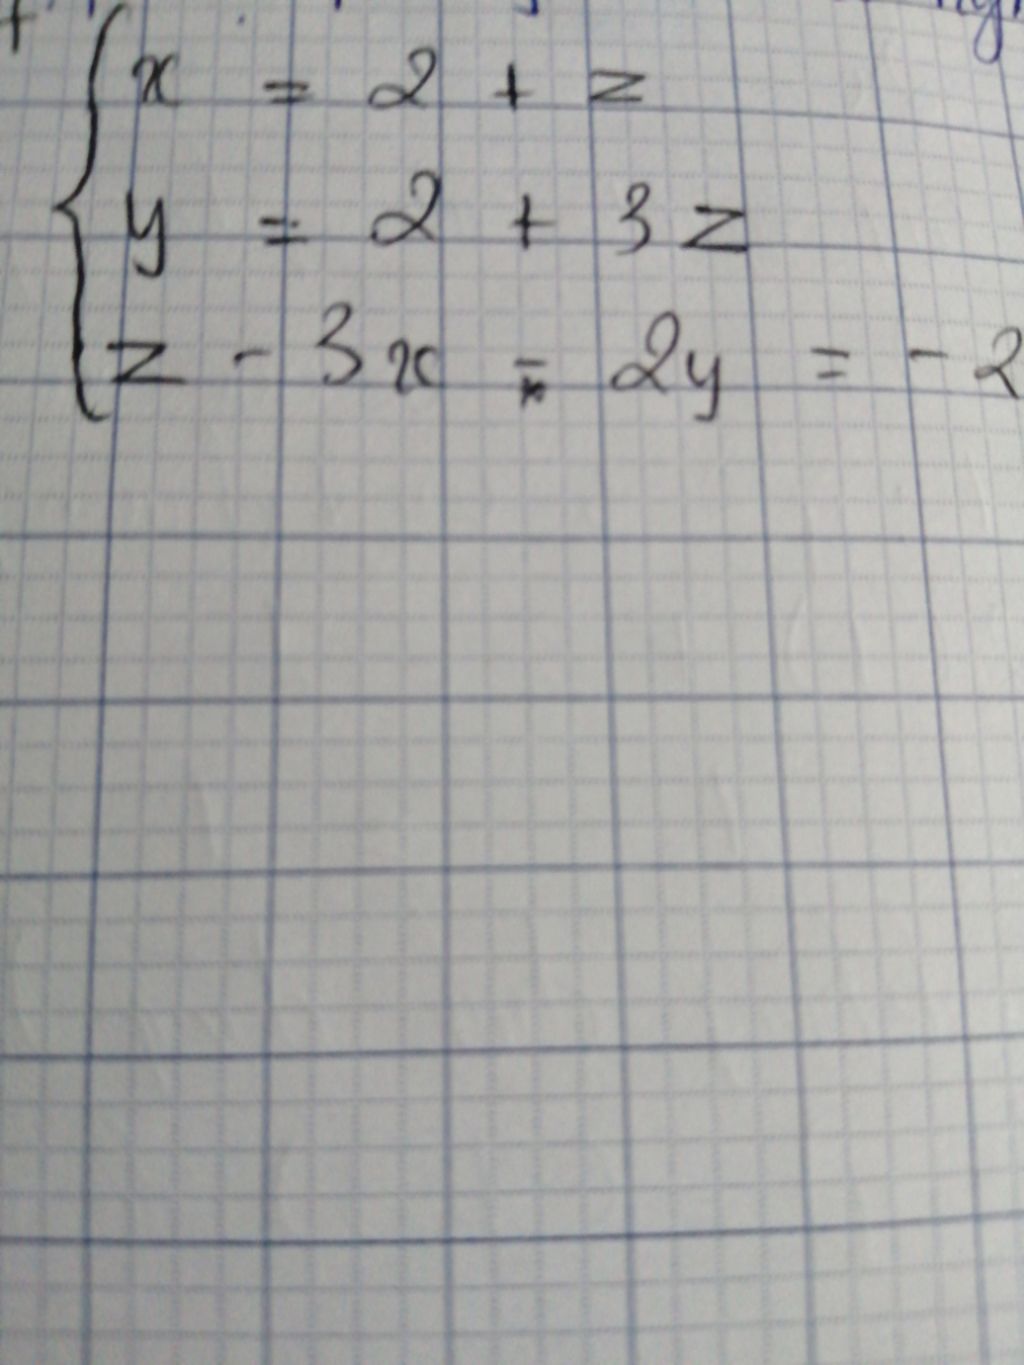 x = 2 + z
y = 2 + 3z
z - 3x - 2y = -2